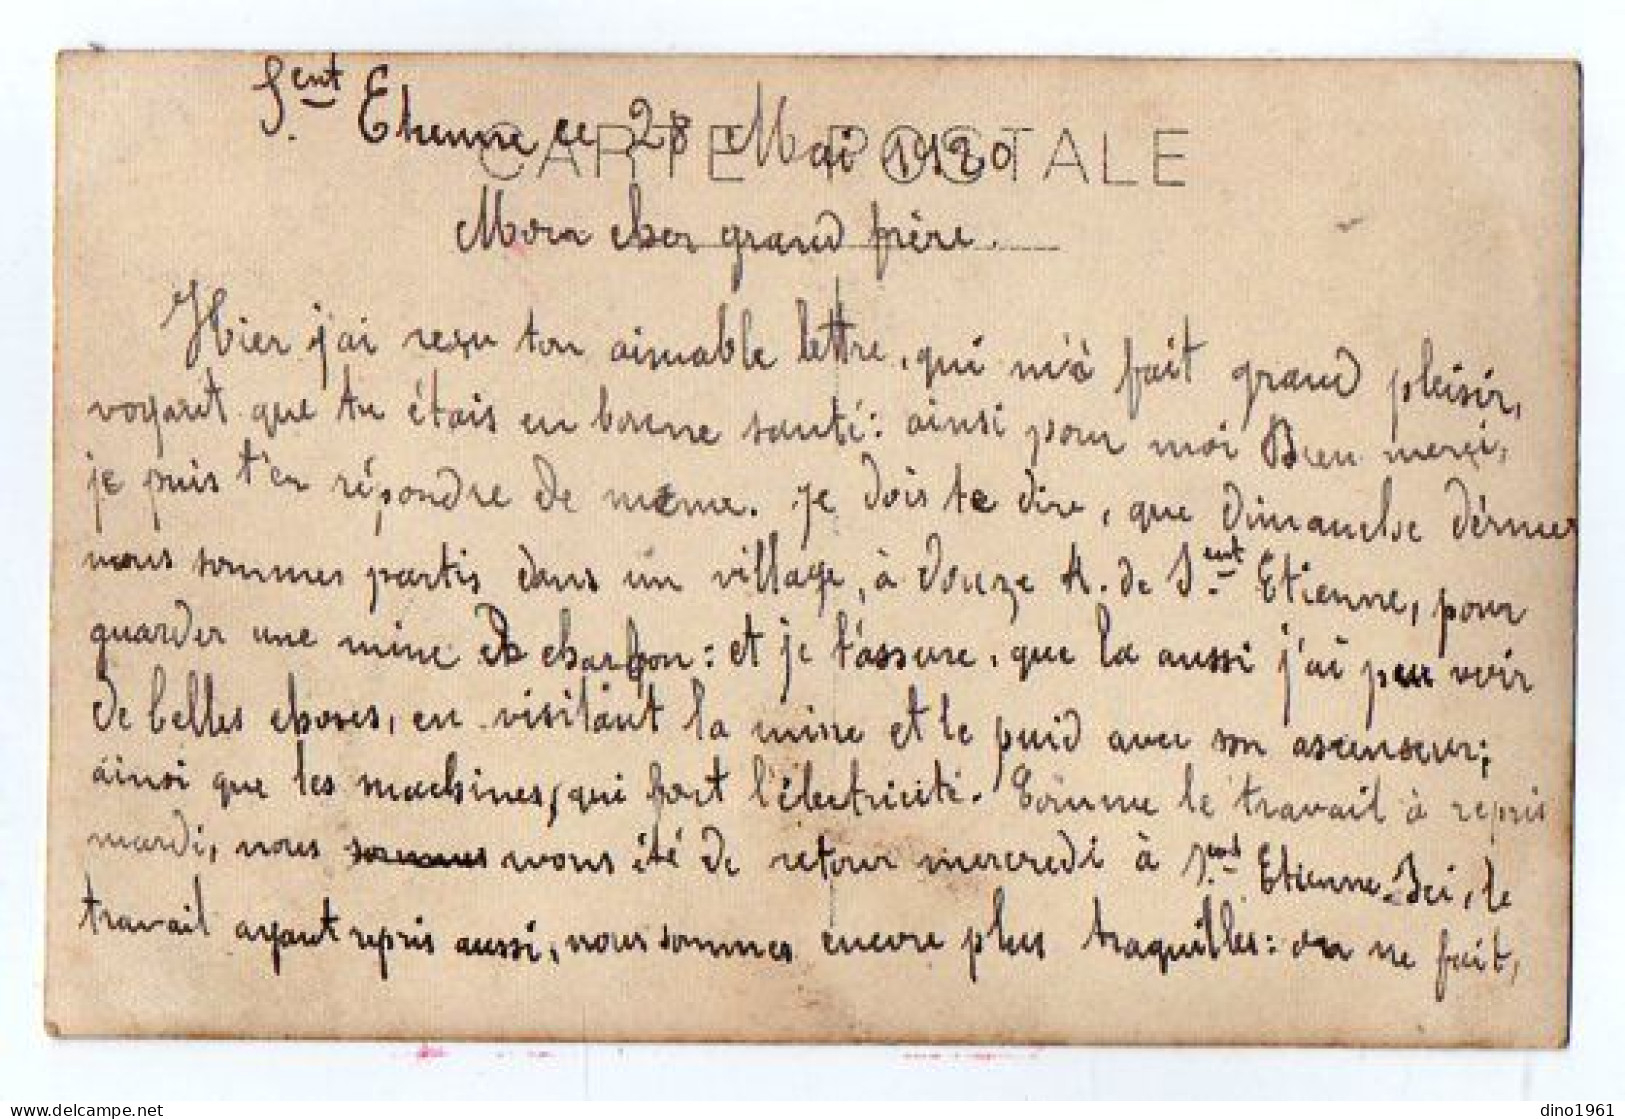 S.ent Etienne ce 28 Mai 1920
CARTE POSTALE
Mon cher grand frère.
Hier j'ai reçu ton aimable lettre, qui m'à fait grand pleisir,
voyant que tu étais en bonne santé: ainsi pour moi Dieu merçi,
je puis t'en répondre de même. Je dois te dire, que dimanche dérnier
nous sommes partis dans un village, à douze K. de S.ent Etienne, pour
guarder une mine de charbon: et je t'assure, que la aussi j'ai peu voir
de belles choses, en visitant la mine et le puid avec son ascenseur;
ainsi que les machines, qui font l'électricité. Comme le travail à repris
mardi, nous sommes avons été de retour mercredi à S.ent Etienne. Ici, le
travail ayant repris aussi, nous sommes encore plus traquilles: on ne fait,
dino1961